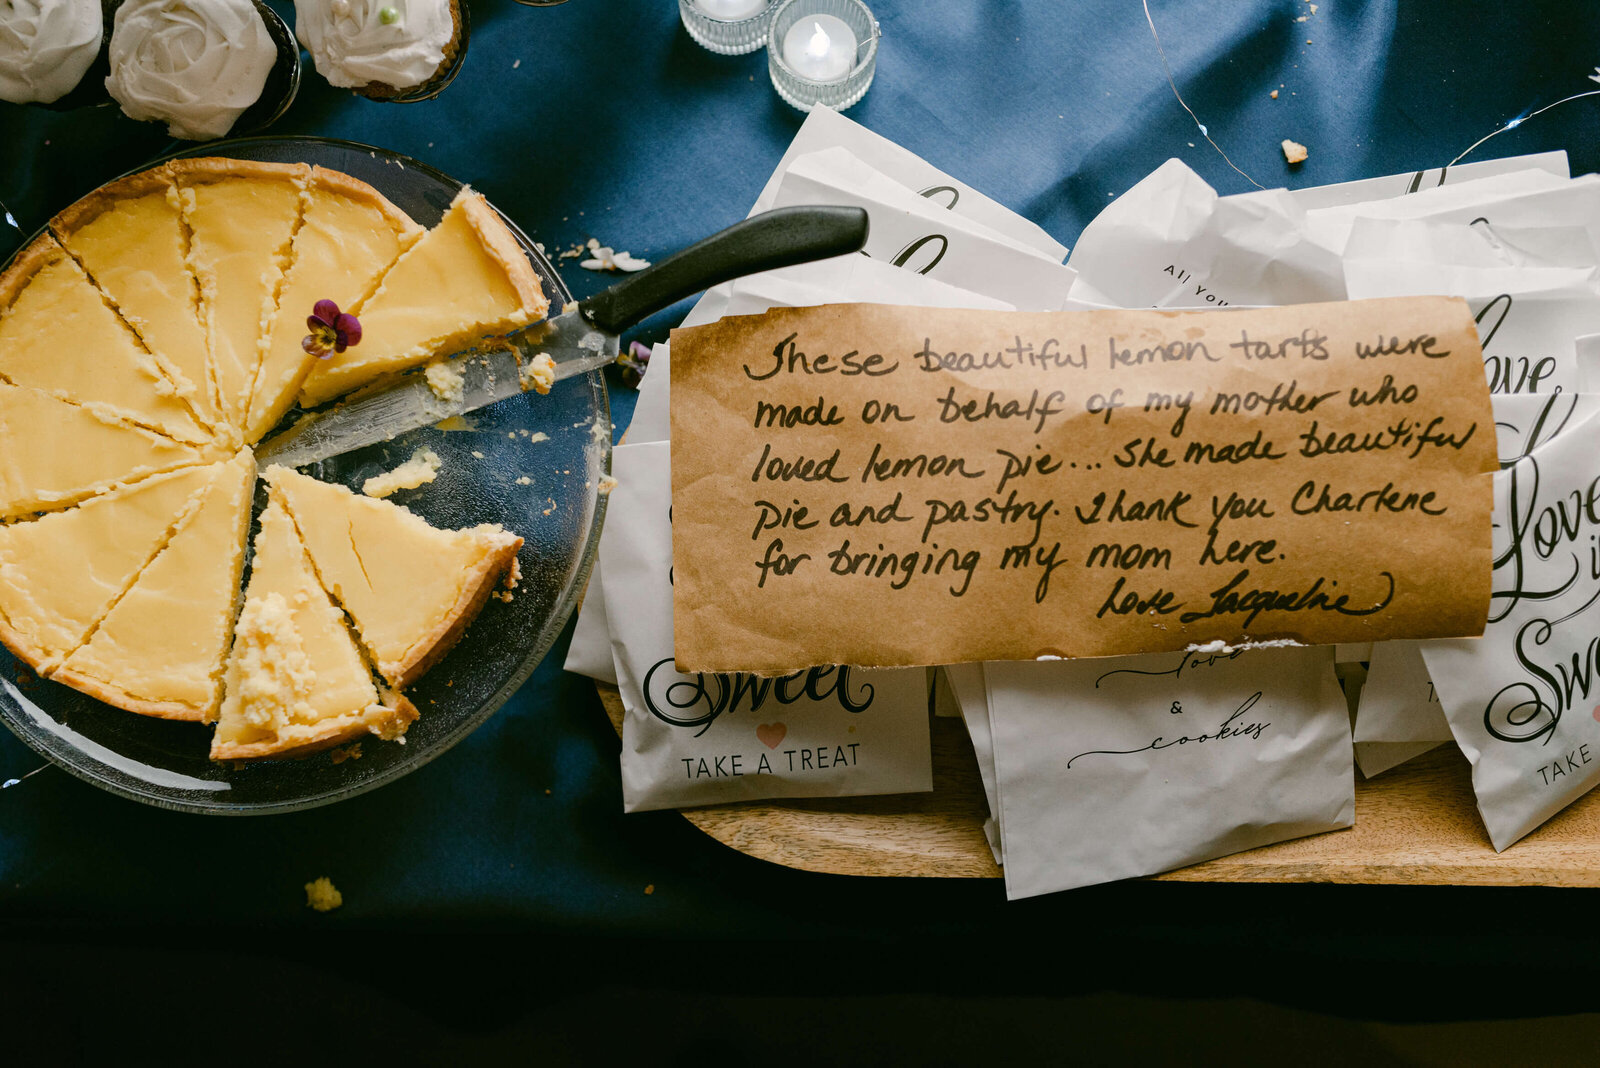 All You
These beautiful lemon tarts were
made on behalf of my mother who
loved lemon pie... She made beautiful
pie and pastry. Thank you Charlene
for bringing my mom here.
Love Jacqueline
love
&
cookies
Sweet
TAKE A TREAT
Love
Love
Sw
TAKE